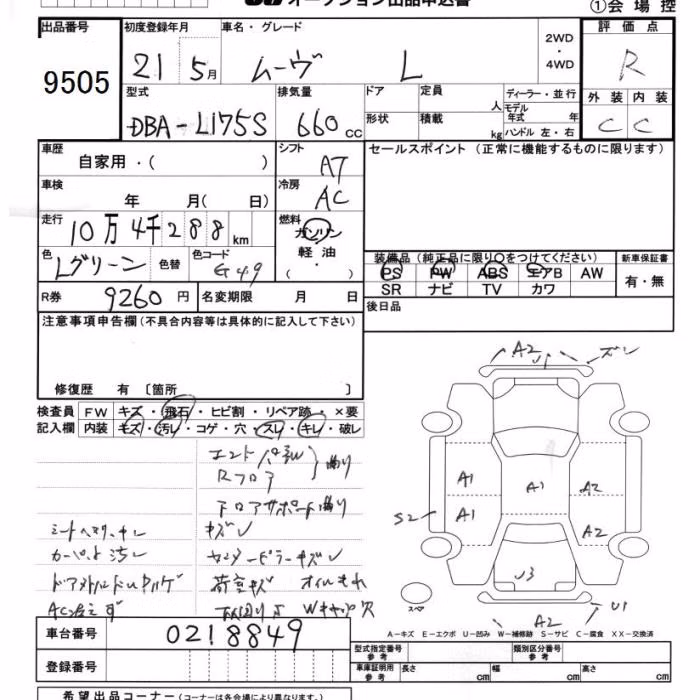 オークション出品申込書
①会場控
出品番号
9505
初度登録年月
21 5月
車名・グレード
ムーヴ L
2WD
・
4WD
評価点
R
外装 内装
C C
型式
DBA-L175S
排気量
660 CC
ドア
定員
人
ディーラー・並行
モデル
年式 年
形状
積載
kg
ハンドル 左・右
車歴
自家用・( )
シフト
AT
セールスポイント (正常に機能するものに限ります)
車検
年 月( 日)
冷房
AC
走行
10万4千288km
燃料
ガソリン
軽油
( ・ )
色
Lグリーン
色替
色コード
G49
装備品 (純正品に限り〇をつけてください)
新車保証書
PS PW ABS エアB AW
有・無
SR ナビ TV カワ
R券
9260円
名変期限 月 日
後日品
注意事項申告欄 (不具合内容等は具体的に記入して下さい)
修復歴 有 〔箇所 〕
検査員
記入欄
FW キズ・飛石・ヒビ割・リペア跡・×要
内装 キズ・汚レ・コゲ・穴・スレ・キレ・破レ
Rフロア
曲り
フロアサポート曲り
カーペット汚レ
センターピラーキズ
荷室キズ
オイルモレ
A2 U1
A1 A1 A2
A1 A2
S2
U3
A2 U1
スペア
A－キズ E－エクボ U－凹み W－補修跡 S－サビ C－腐食 XX－交換済
車台番号
0218849
型式指定番号
参考
類別区分番号
参考
登録番号
車庫証明用
参考
長さ cm
幅 cm
高さ cm
希望出品コーナー (コーナーは各会場により異なります。)